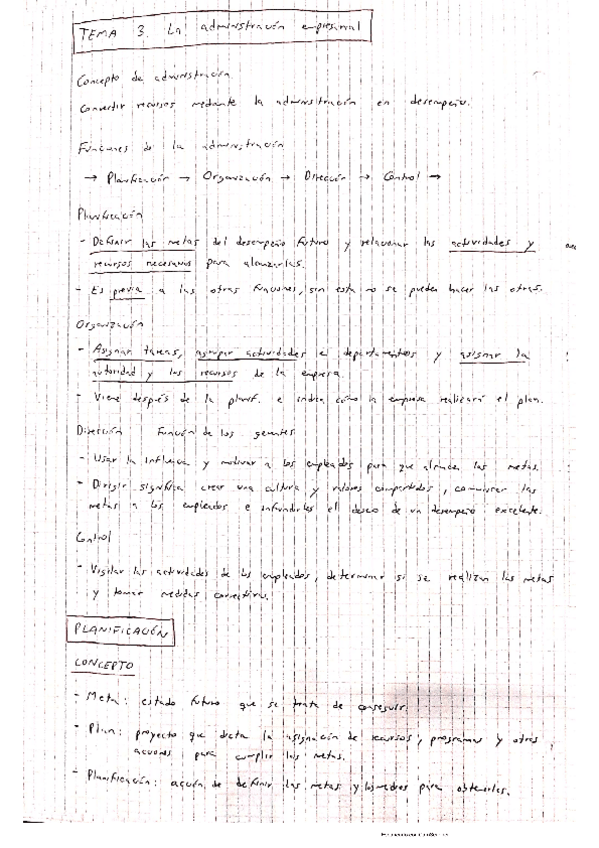 TEMA 3. La administración empresarial
Concepto de administración
Convertir recursos mediante la administración en desempeño.
Funciones de la administración
→ Planificación → Organización → Dirección → Control →
Planificación
- Definir las metas del desempeño futuro y relacionar las actividades y
recursos necesarios para alcanzarlas.
- Es previa a las otras funciones, sin esta no se pueden hacer las otras.
Organización
- Asignar tareas, agrupar actividades en departamentos y asignar la
autoridad y los recursos de la empresa.
- Viene después de la planif. e indica cómo la empresa realizará el plan.
Dirección Función de los gerentes
- Usar la influencia y motivar a los empleados para que alcancen las metas.
- Dirigir significa crear una cultura y valores compartidos, comunicar las
metas a los empleados e infundirles el deseo de un desempeño excelente.
Control
- Vigilar las actividades de los empleados, determinar si se realizan las metas
y tomar medidas correctivas.
PLANIFICACIÓN
CONCEPTO
- Meta: estado futuro que se trata de conseguir.
- Plan: proyecto que dicta la asignación de recursos, programas y otras
acciones para cumplir las metas.
- Planificación: acción de definir las metas y los medios para obtenerlas.